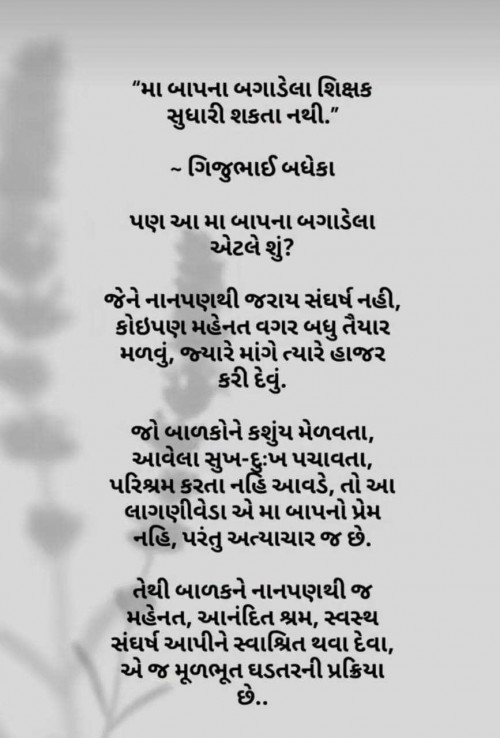 “મા બાપના બગાડેલા શિક્ષક
સુધારી શકતા નથી.”
~ ગિજુભાઈ બધેકા
પણ આ મા બાપના બગાડેલા
એટલે શું?
જેને નાનપણથી જરાય સંઘર્ષ નહી,
કોઇપણ મહેનત વગર બધુ તૈયાર
મળવું, જ્યારે માંગે ત્યારે હાજર
કરી દેવું.
જો બાળકોને કશુંય મેળવતા,
આવેલા સુખ-દુઃખ પચાવતા,
પરિશ્રમ કરતા નહિ આવડે, તો આ
લાગણીવેડા એ મા બાપનો પ્રેમ
નહિ, પરંતુ અત્યાચાર જ છે.
તેથી બાળકને નાનપણથી જ
મહેનત, આનંદિત શ્રમ, સ્વસ્થ
સંઘર્ષ આપીને સ્વાશ્રિત થવા દેવા,
એ જ મૂળભૂત ઘડતરની પ્રક્રિયા
છે..